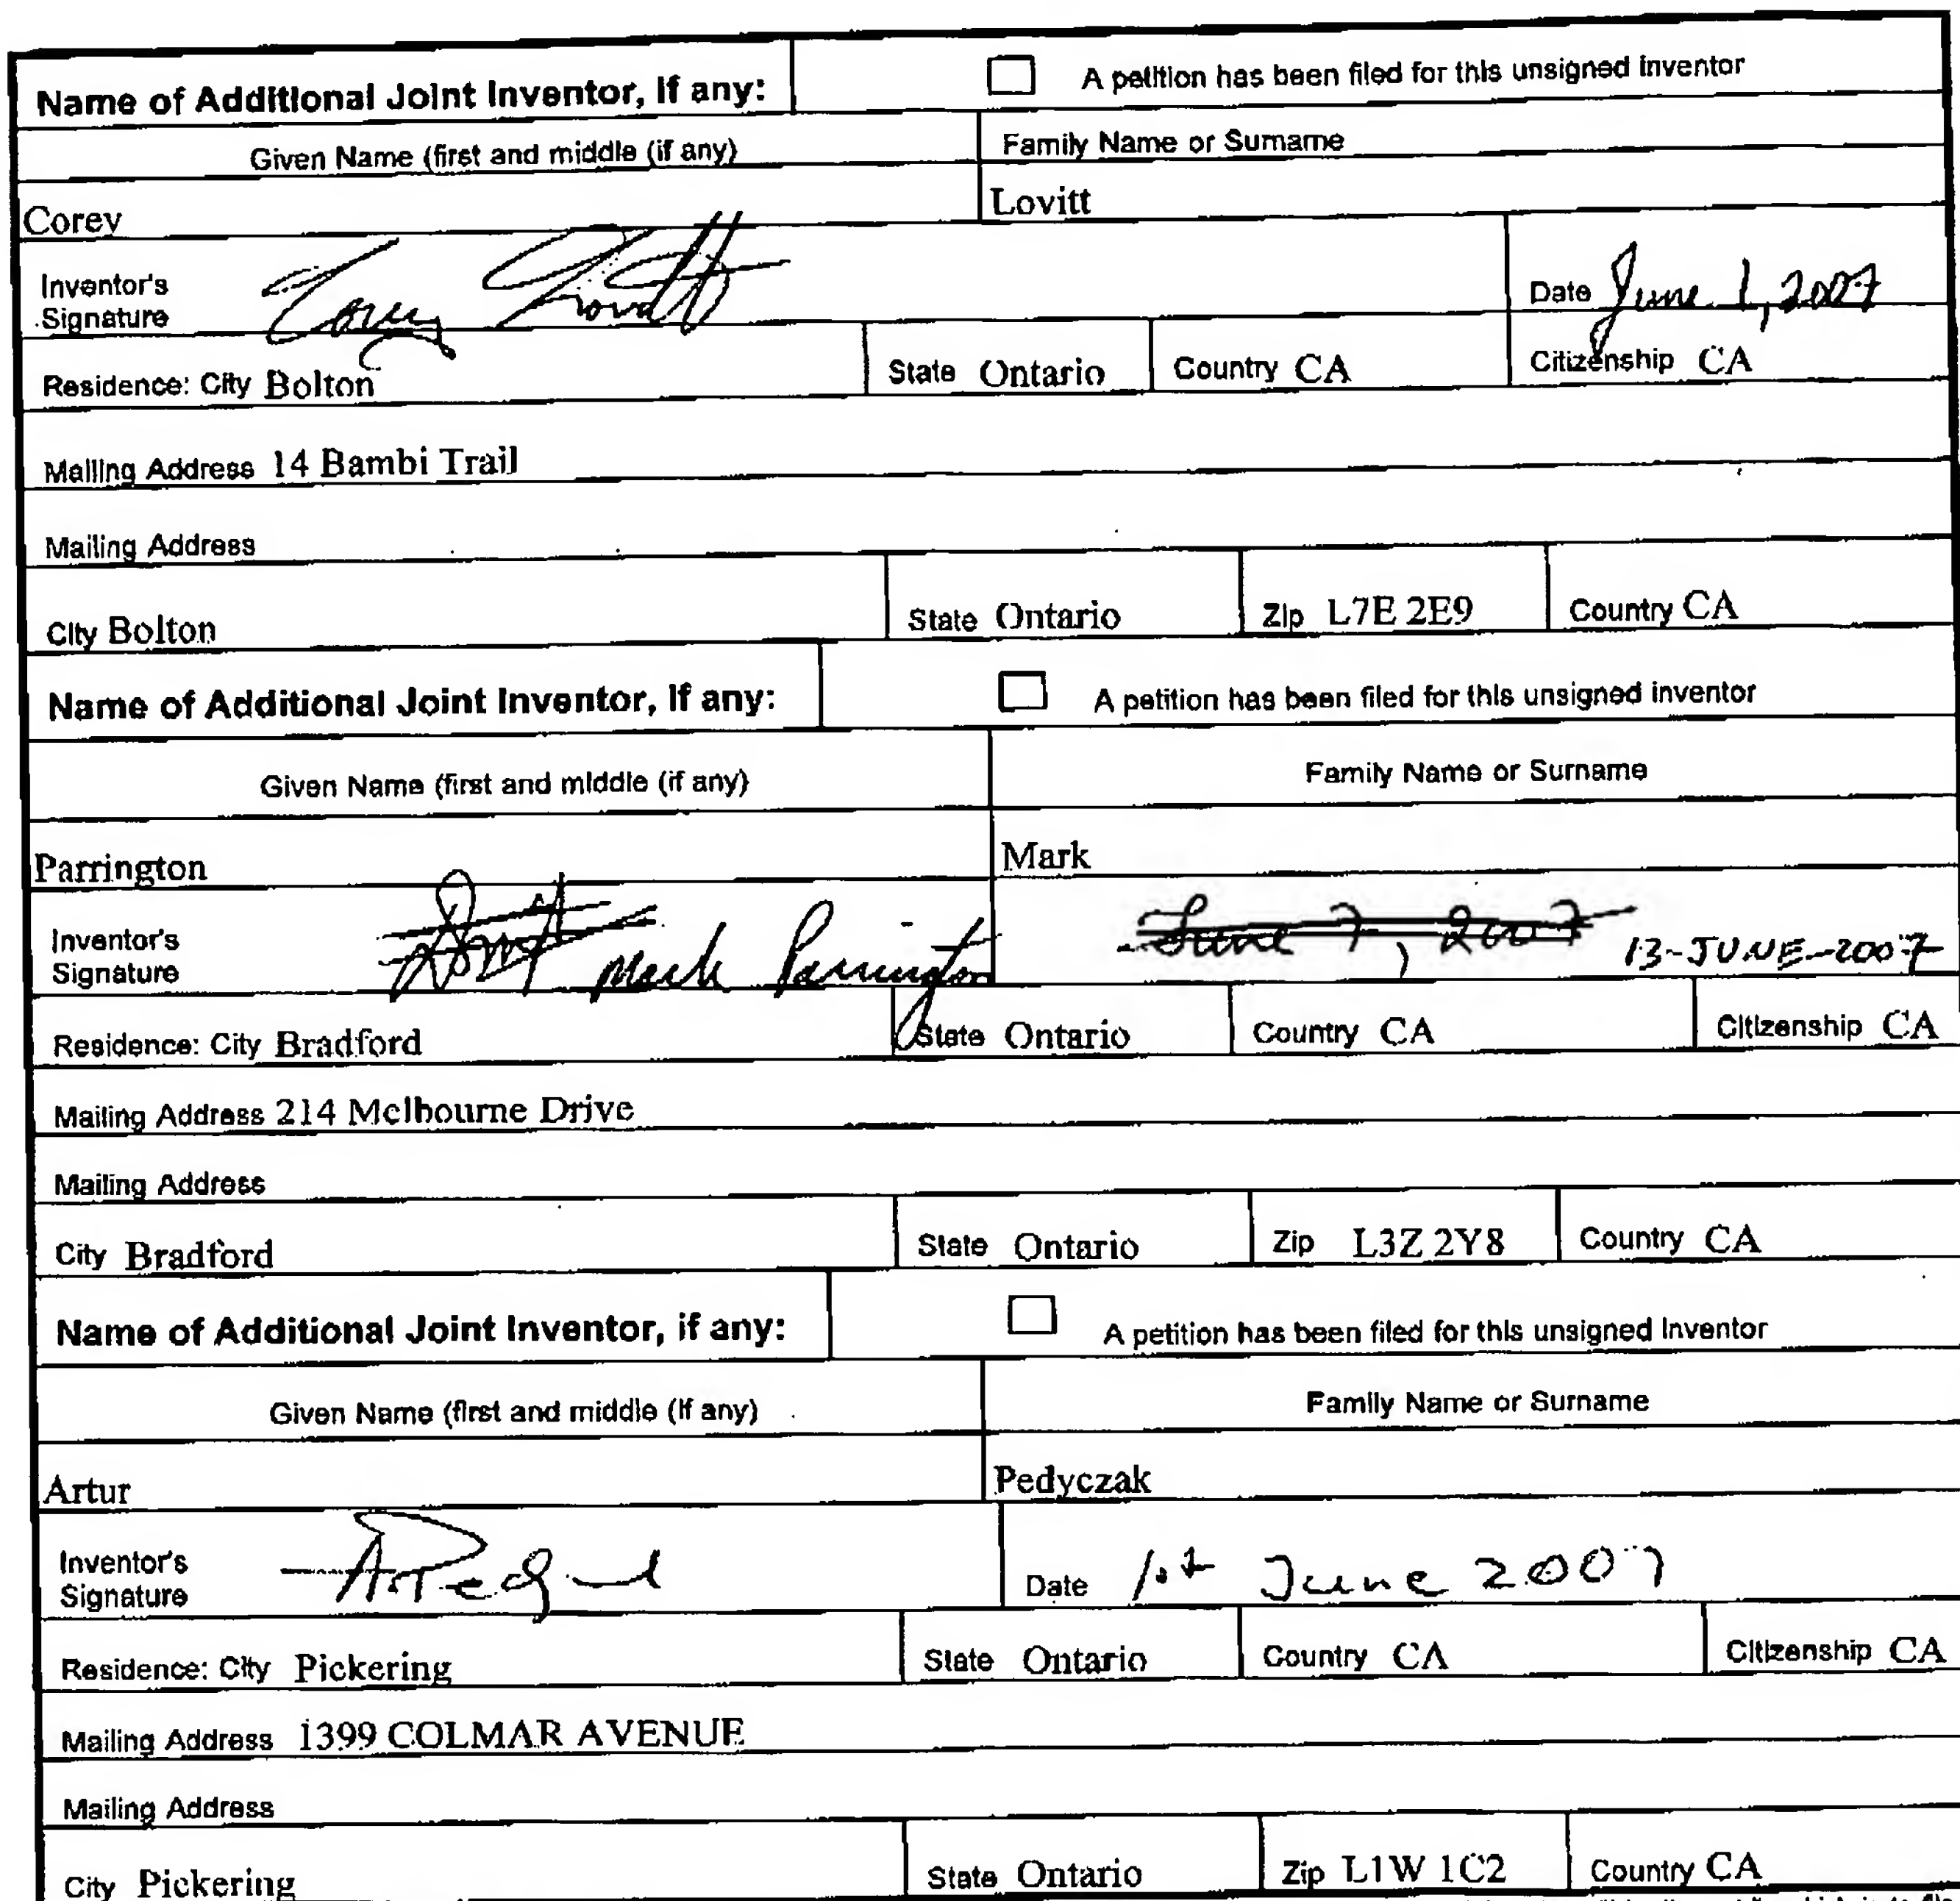 Name of Additional Joint Inventor, if any: A petition has been filed for this unsigned inventor
Given Name (first and middle (if any) Family Name or Surname
Corey Lovitt
Inventor's Signature Corey Lovitt Date June 1, 2007
Residence: City Bolton State Ontario Country CA Citizenship CA
Mailing Address 14 Bambi Trail
Mailing Address
City Bolton State Ontario Zip L7E 2E9 Country CA
Name of Additional Joint Inventor, if any: A petition has been filed for this unsigned inventor
Given Name (first and middle (if any) Family Name or Surname
Parrington Mark
Inventor's Signature Mark Parrington June 7, 2007 13-JUNE-2007
Residence: City Bradford State Ontario Country CA Citizenship CA
Mailing Address 214 Melbourne Drive
Mailing Address
City Bradford State Ontario Zip L3Z 2Y8 Country CA
Name of Additional Joint Inventor, if any: A petition has been filed for this unsigned inventor
Given Name (first and middle (if any) Family Name or Surname
Artur Pedyczak
Inventor's Signature Date 1st June 2007
Residence: City Pickering State Ontario Country CA Citizenship CA
Mailing Address 1399 COLMAR AVENUE
Mailing Address
City Pickering State Ontario Zip L1W 1C2 Country CA